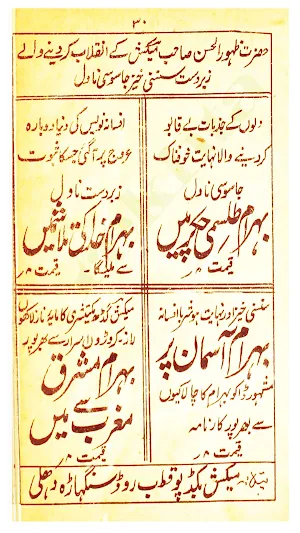 ۳۰
حضرت ظہور الحسن صاحب میکش کے انقلاب کر دینے والے
زبردست سنسنی خیز جاسوسی ناول
دلوں کے جذبات بے قابو
کر دینے والا نہایت خوفناک
جاسوسی ناول
بہرام طلسمی چکر میں
قیمت ۸ر
افسانہ نویس کی دنیا دوبارہ
عروج پر آگئی جسکا ثبوت
زبردست ناول
بہرام خاکی تلاش میں
سے ملیگا۔ قیمت ۸ر
سنسنی خیز اور نہایت ہوشربا افسانہ
بہرام آسمان پر
مشہور ڈاکو بہرام کا چالاکیوں
سے بھرپور کارنامہ
قیمت ۸ر
میکش کی
مایہ ناز لاکھوں
کروڑوں اسرار سے بھرپور
بہرام مشرق
سے
مغرب میں
قیمت ۸ر
پتہ:۔ میکش بکڈپو قطب روڈ سنگھاڑہ دہلی